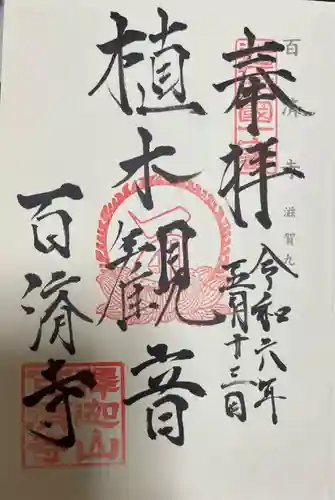 奉拝
百済寺 滋賀九
令和六年
五月十三日
植木観音
百済寺
釈迦山